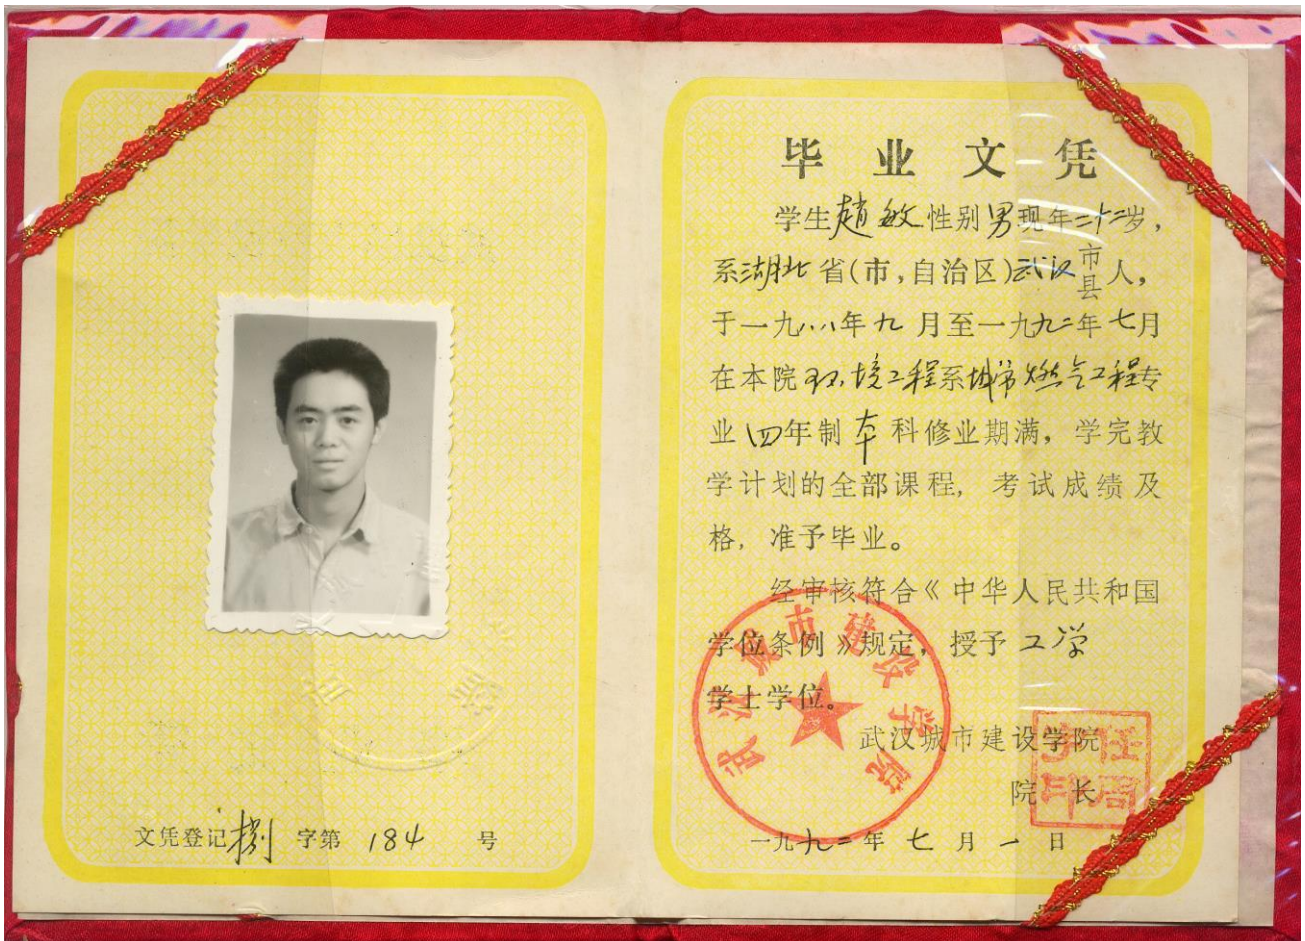 文凭登记捌字第 184 号
毕业文凭
学生赵敏性别男现年二十二岁，
系湖北省(市,自治区)武汉市县人，
于一九八八年九月至一九九二年七月
在本院环境工程系城市燃气工程专
业四年制本科修业期满，学完教
学计划的全部课程，考试成绩及
格，准予毕业。
经审核符合《中华人民共和国
学位条例》规定，授予工学
学士学位。
武汉城市建设学院
武汉城市建设学院
院长
一九九二年七月一日